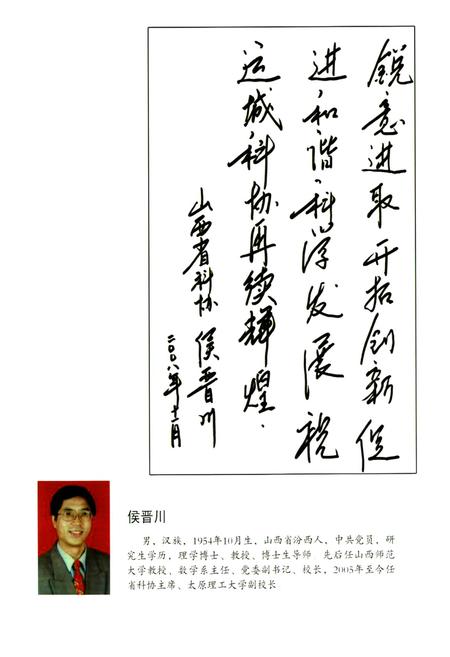 锐意进取开拓创新促
进和谐科学发展祝
运城科协再续辉煌.
山西省科协 侯晋川
二〇〇八年十一月
侯晋川
男，汉族，1954年10月生，山西省汾西人，中共党员，研
究生学历，理学博士、教授、博士生导师 先后任山西师范
大学教授、数学系主任、党委副书记、校长，2005年至今任
省科协主席、太原理工大学副校长